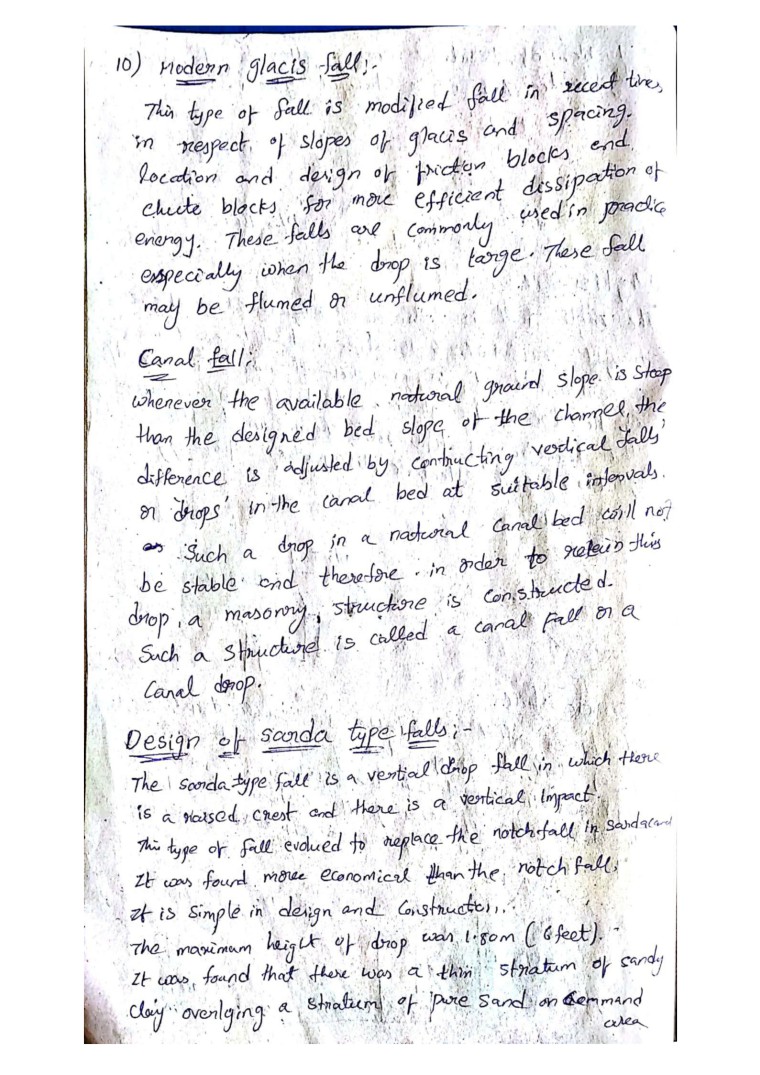 10) Modern glacis fall:-
This type of fall is modified fall in recent times
in respect of slopes of glacis and spacing.
location and design of friction blocks and
chute blocks for more efficient dissipation of
energy. These falls are commonly used in practice
especially when the drop is large. These fall
may be flumed or unflumed.
Canal fall:
whenever the available natural ground slope is steep
than the designed bed slope of the channel, the
difference is adjusted by contructing vertical falls
or 'drops' in the canal bed at suitable intervals.
Such a drop in a natural canal bed will not
be stable and therefore in order to retain this
drop, a masonry structure is constructed.
Such a structure is called a canal fall or a
Canal drop.
Design of sarda type falls:-
The sarda type fall is a vertial drop fall in which there
is a raised crest and there is a vertical Impact.
This type of fall evolued to replace the notch fall in Sarda canal
It was found more economical than the notch fall.
It is simple in design and
The maximum height of drop was 1.80m (6 feet).
It was found that there was a thin stratum of sandy
clay overlging a stratum of pure sand on Command
area